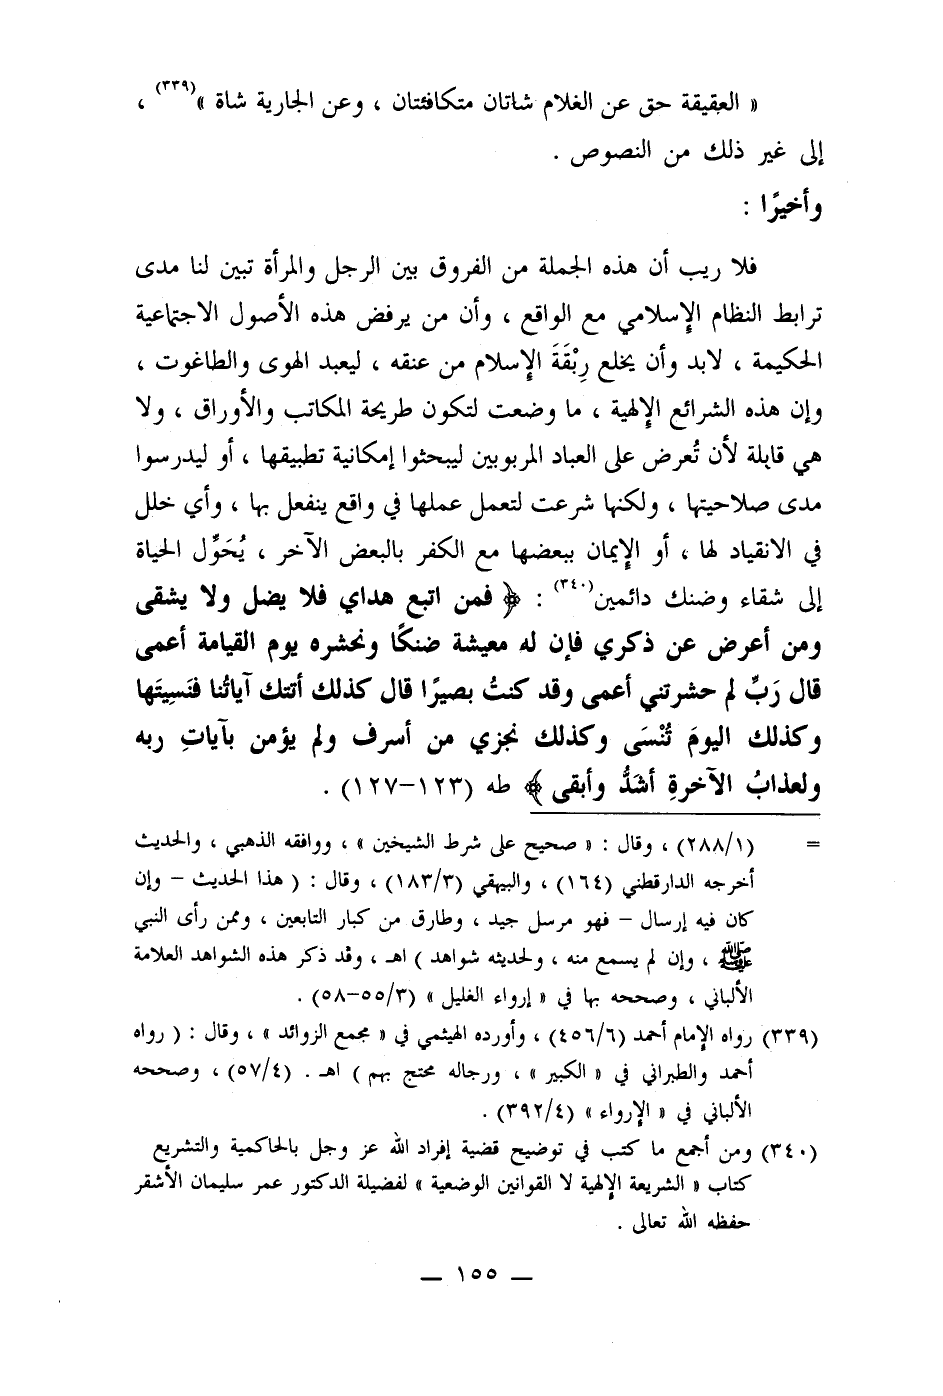 « العقيقة حق عن الغلام شاتان متكافئتان ، وعن الجارية شاة »(٣٣٩) ،
إلى غير ذلك من النصوص .
وأخيرًا :
فلا ريب أن هذه الجملة من الفروق بين الرجل والمرأة تبين لنا مدى
ترابط النظام الإسلامي مع الواقع ، وأن من يرفض هذه الأصول الاجتماعية
الحكيمة ، لابد وأن يخلع رِبْقَةَ الإسلام من عنقه ، ليعبد الهوى والطاغوت ،
وإن هذه الشرائع الإلهية ، ما وضعت لتكون طريحة المكاتب والأوراق ، ولا
هي قابلة لأن تُعرض على العباد المربوبين ليبحثوا إمكانية تطبيقها ، أو ليدرسوا
مدى صلاحيتها ، ولكنها شرعت لتعمل عملها في واقع ينفعل بها ، وأي خلل
في الانقياد لها ، أو الإيمان ببعضها مع الكفر بالبعض الآخر ، يُحَوِّل الحياة
إلى شقاء وضنك دائمين(٣٤٠) : ﴿ فمن اتبع هداي فلا يضل ولا يشقى
ومن أعرض عن ذكري فإن له معيشة ضنكًا ونحشره يوم القيامة أعمى
قال رَبِّ لم حشرتني أعمى وقد كنتُ بصيرًا قال كذلك أتتك آياتُنا فنَسِيتَها
وكذلك اليومَ تُنْسَى وكذلك نجزي من أسرف ولم يؤمن بآياتِ ربه
ولعذابُ الآخرةِ أشدُّ وأبقى ﴾ طه (١٢٣–١٢٧) .
= (٢٨٨/١) ، وقال : « صحيح على شرط الشيخين » ، ووافقه الذهبي ، والحديث
أخرجه الدارقطني (١٦٤) ، والبيهقي (١٨٣/٣) ، وقال : ( هذا الحديث – وإن
كان فيه إرسال – فهو مرسل جيد ، وطارق من كبار التابعين ، وممن رأى النبي
ﷺ ، وإن لم يسمع منه ، ولحديثه شواهد ) اهـ ، وقد ذكر هذه الشواهد العلامة
الألباني ، وصححه بها في « إرواء الغليل » (٥٥/٣–٥٨) .
(٣٣٩) رواه الإمام أحمد (٤٥٦/٦) ، وأورده الهيثمي في « مجمع الزوائد » ، وقال : ( رواه
أحمد والطبراني في « الكبير » ، ورجاله محتج بهم ) اهـ . (٥٧/٤) ، وصححه
الألباني في « الإرواء » (٣٩٢/٤) .
(٣٤٠) ومن أجمع ما كتب في توضيح قضية إفراد الله عز وجل بالحاكمية والتشريع
كتاب « الشريعة الإلهية لا القوانين الوضعية » لفضيلة الدكتور عمر سليمان الأشقر
حفظه الله تعالى .
— ١٥٥ —